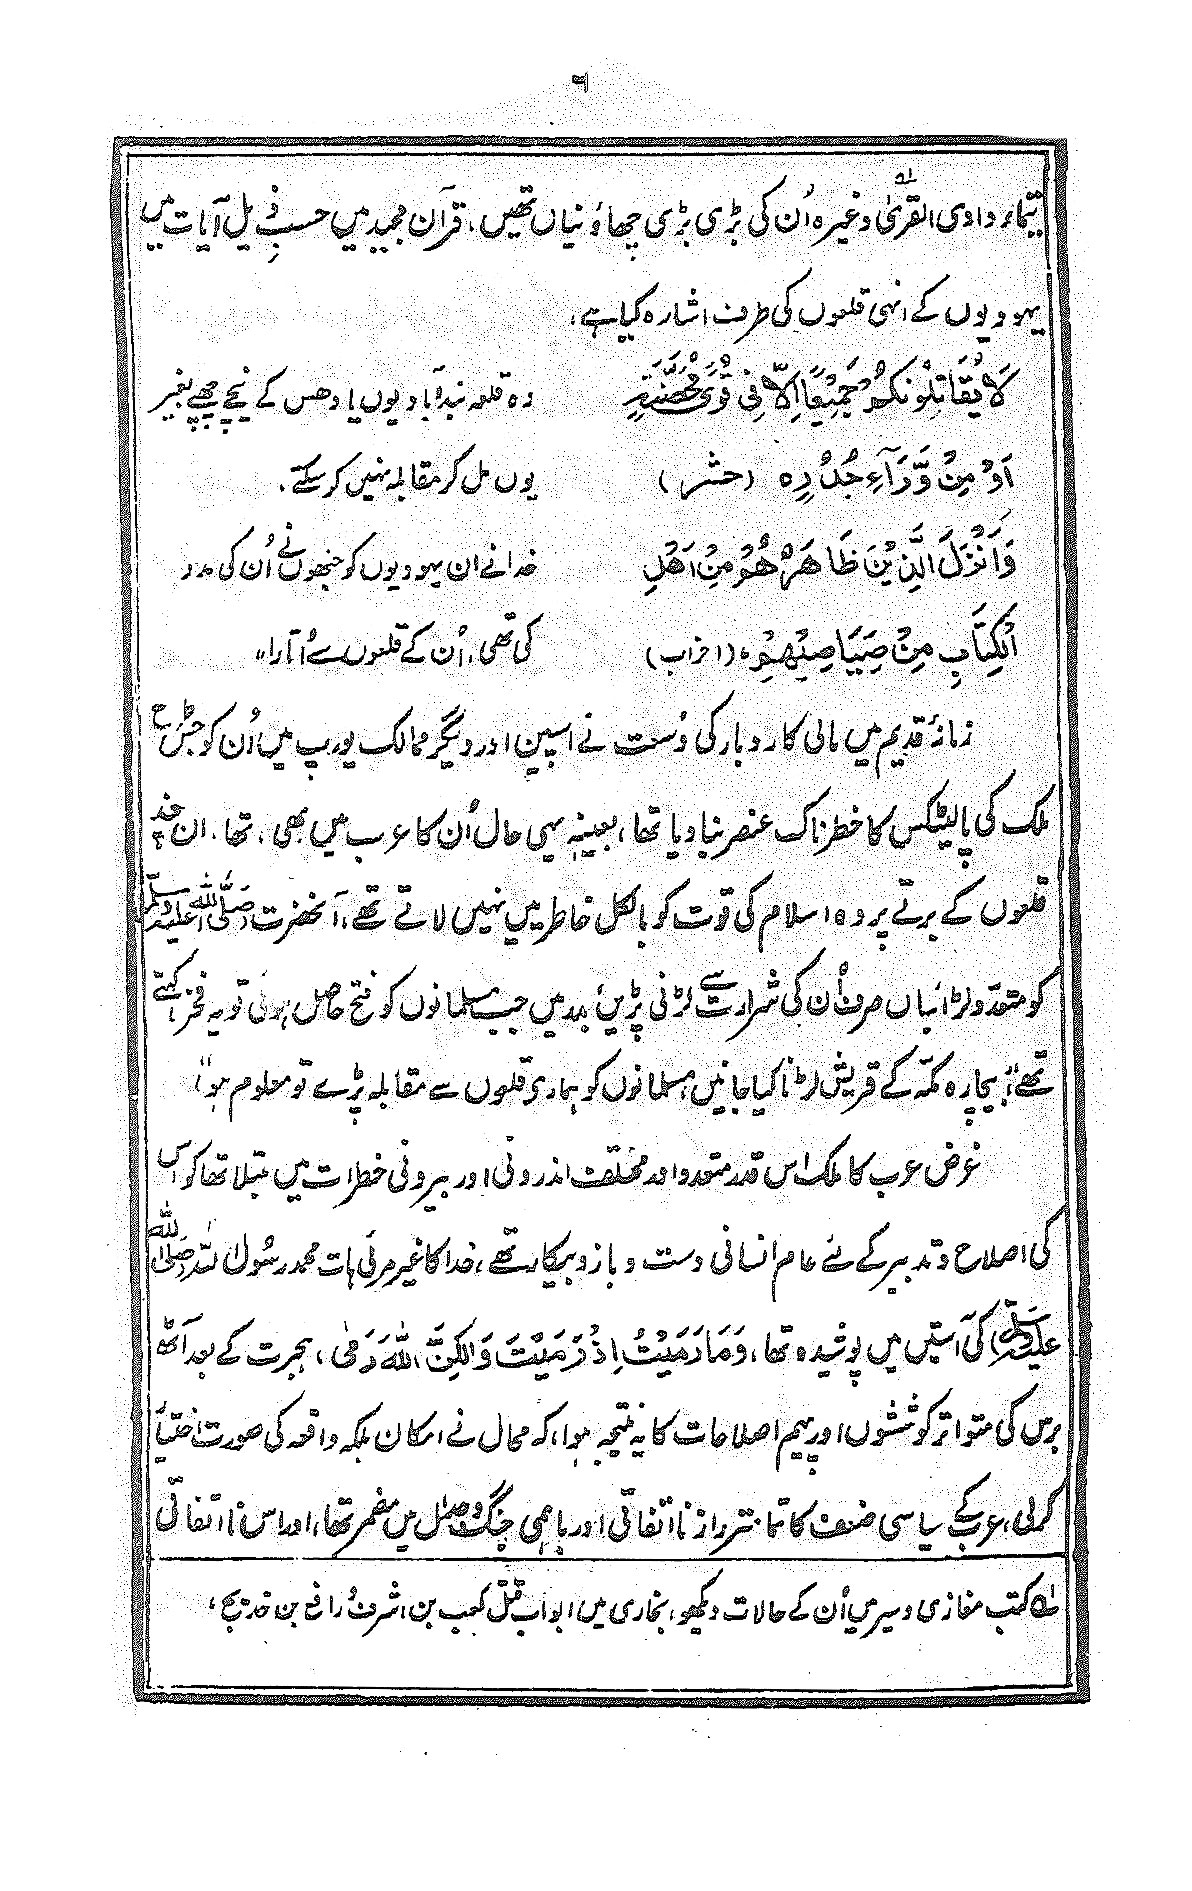 ۶
تیماء، وادی القریٰ وغیرہ اُن کی بڑی بڑی چھاؤنیاں تھیں، قرآن مجید میں حسب ذیل آیات میں
یہودیوں کے انہی قلعوں کی طرف اشارہ کیا ہے،
لَا يُقَاتِلُونَكُمْ جَمِيْعًا اِلَّا فِي قُرًى مُّحَصَّنَةٍ وہ قلعہ بند آبادیوں یا دھس کے نیچے چھپے بغیر
اَوْ مِنْ وَّرَآءِ جُدُرٍ ہ (حشر) یوں مل کر مقابلہ نہیں کر سکتے.
وَاَنْزَلَ الَّذِيْنَ ظَاهَرُوْهُمْ مِنْ اَهْلِ خدا نے ان یہودیوں کو جنھوں نے اُن کی مدد
الْكِتَابِ مِنْ صَيَاصِيْهِمْ ہ (احزاب) کی تھی، اُن کے قلعوں سے اُتارا"
زمانۂ قدیم میں مالی کاروبار کی وُسعت نے اسپین اور دیگر ممالک یورپ میں اُن کو جس طرح
ملک کی پالیٹکس کا خطرناک عنصر بنا دیا تھا، بعینہٖ یہی حال اُن کا عرب میں بھی، تھا. ان چند
قلعوں کے برتے پر وہ اسلام کی قوت کو بالکل خاطر میں نہیں لاتے تھے، آنحضرت (صلی اللہ علیہ وسلم)
کو متعدد لڑائیاں صرف اُن کی شرارت سے لڑنی پڑیں، بعد میں جب مسلمانوں کو فتح حاصل ہوئی تو یہ فخراً کہتے
تھے: "بیچارہ مکہ کے قریش لڑنا کیا جانیں، مسلمانوں کو ہماری قلعوں سے مقابلہ پڑے تو معلوم ہو"،
غرض عرب کا ملک اس قدر متعدد اور مختلف اندرونی اور بیرونی خطرات میں مبتلا تھا کہ اس
کی اصلاح و تدبیر کے لئے عام انسانی دست و بازو بیکار تھے، خدا کا غیر مرئی ہات محمد رسول اللہ (صلی اللہ
علیہ وسلم) کی آستیں میں پوشیدہ تھا، وَمَا رَمَيْتَ اِذْ رَمَيْتَ وَلٰكِنَّ اللهَ رَمٰى، ہجرت کے بعد آٹھ
برس کی متواتر کوششوں اور پیہم اصلاحات کا یہ نتیجہ ہوا، کہ محال نے امکان بلکہ واقعہ کی صورت اختیار
کر لی، عرب کے سیاسی ضعف کا تمامتر راز نا اتفاقی اور باہمی جنگ و جدل میں مضمر تھا، اور اس نا اتفاقی
لے کتب مغازی و سیر میں اُن کے حالات دیکھو، بخاری میں ابواب قتل کعب بن اشرف و رافع بن خدیج،